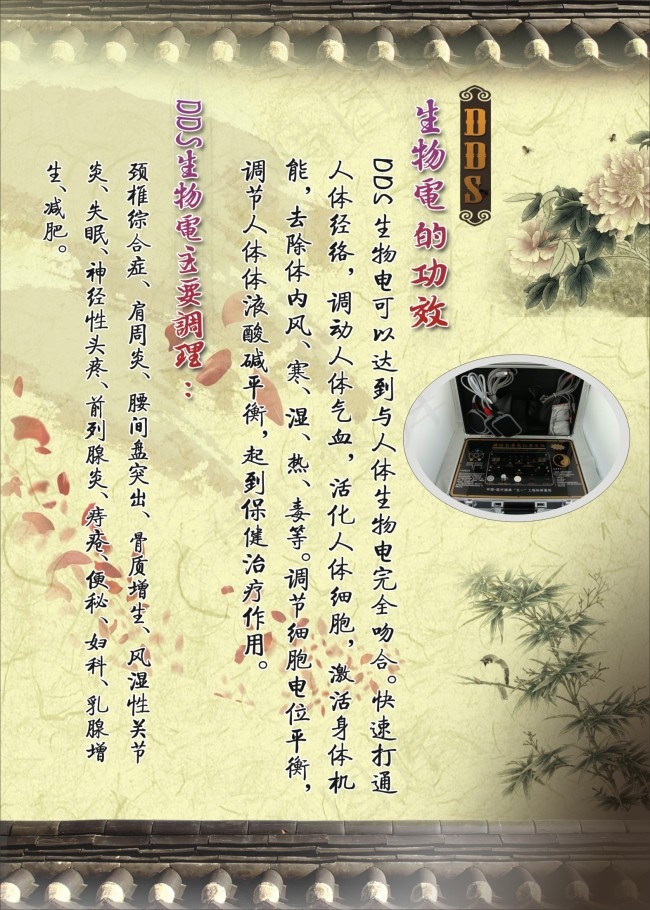 DDS
生物電的功效
DDS生物电可以达到与人体生物电完全吻合。快速打通
人体经络，调动人体气血，活化人体细胞，激活身体机
能，去除体内风、寒、湿、热、毒等。调节细胞电位平衡，
调节人体体液酸碱平衡，起到保健治疗作用。
DDS生物電主要調理：
颈椎综合症、肩周炎、腰间盘突出、骨质增生、风湿性关节
炎、失眠、神经性头疼、前列腺炎、痔疮、便秘、妇科、乳腺增
生、减肥。